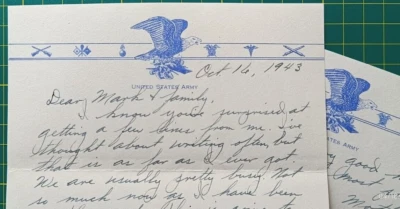 Oct 16, 1943
UNITED STATES ARMY
Dear Mark & family,
I know you're surprised at
getting a few lines from me. I've
thought about writing often, but
that is as far as I ever got.
We are usually pretty busy. Not
so much now as I have been
STATES ARMY
good
most